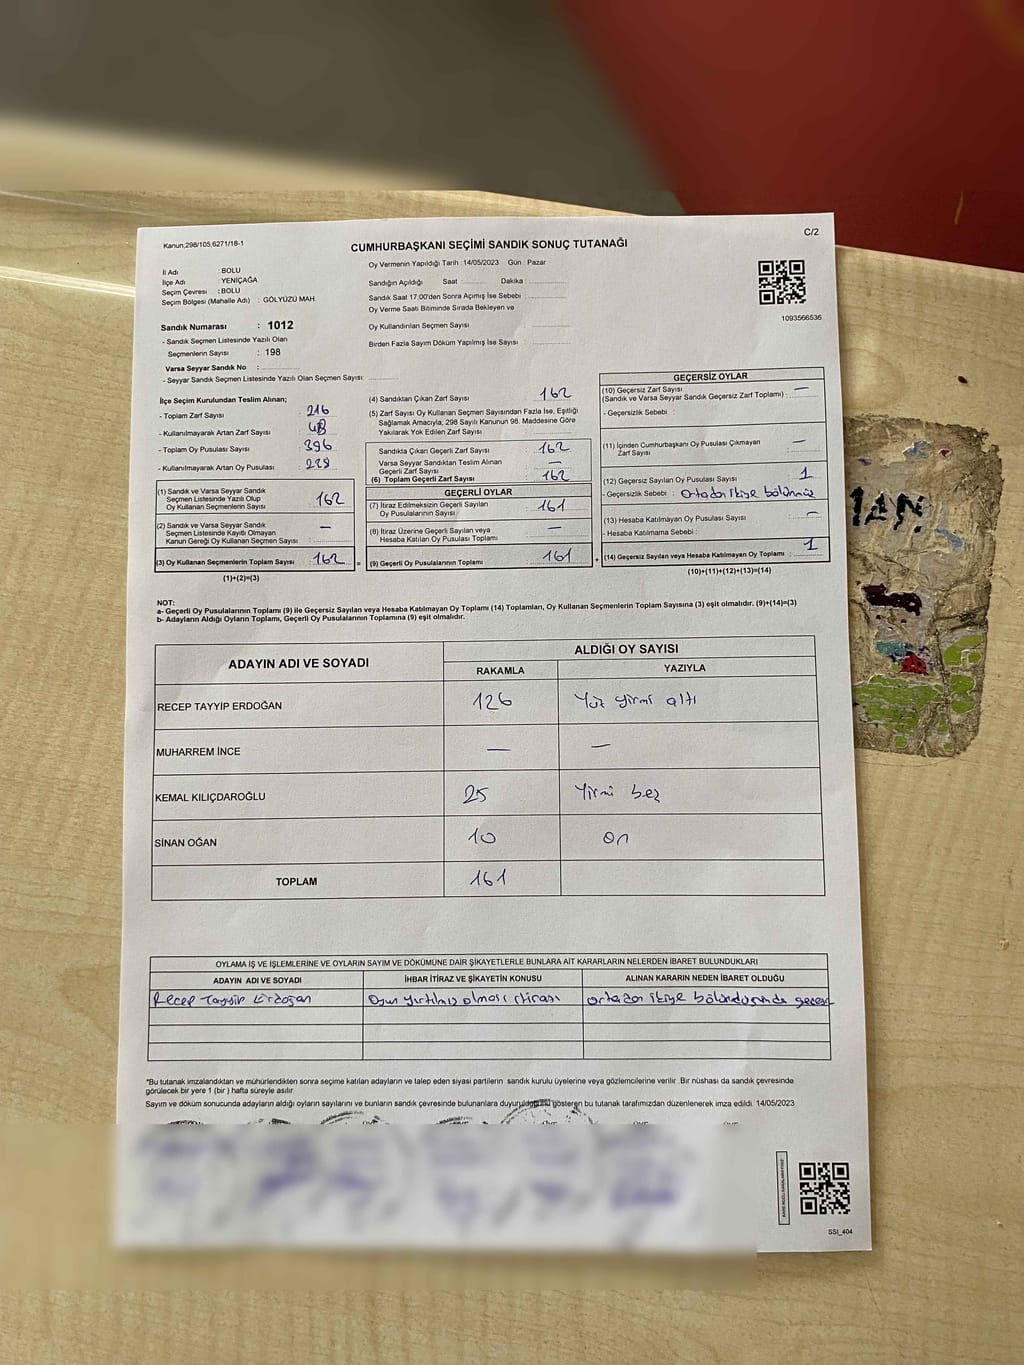 Kanun;298/105;6271/18-1
C/2
CUMHURBAŞKANI SEÇİMİ SANDIK SONUÇ TUTANAĞI
İl Adı : BOLU
İlçe Adı : YENİÇAĞA
Seçim Çevresi : BOLU
Seçim Bölgesi (Mahalle Adı) : GÖLYÜZÜ MAH
Sandık Numarası : 1012
- Sandık Seçmen Listesinde Yazılı Olan
Seçmenlerin Sayısı : 198
Varsa Seyyar Sandık No :
- Seyyar Sandık Seçmen Listesinde Yazılı Olan Seçmen Sayısı:
Oy Vermenin Yapıldığı Tarih : 14/05/2023 Gün : Pazar
Sandığın Açıldığı Saat : Dakika :
Sandık Saat 17:00'den Sonra Açımış İse Sebebi :
Oy Verme Saati Bitiminde Sırada Bekleyen ve
Oy Kullandırılan Seçmen Sayısı
Birden Fazla Sayım Döküm Yapılmış İse Sayısı :
1093566536
İlçe Seçim Kurulundan Teslim Alınan;
- Toplam Zarf Sayısı : 216
- Kullanılmayarak Artan Zarf Sayısı :
- Toplam Oy Pusulası Sayısı : 396
- Kullanılmayarak Artan Oy Pusulası :
(1) Sandık ve Varsa Seyyar Sandık
Seçmen Listesinde Yazılı Olup
Oy Kullanan Seçmenlerin Sayısı : 162
(2) Sandık ve Varsa Seyyar Sandık
Seçmen Listesinde Kayıtlı Olmayan
Kanun Gereği Oy Kullanan Seçmen Sayısı : —
(3) Oy Kullanan Seçmenlerin Toplam Sayısı : 162
(1)+(2)=(3)
(4) Sandıktan Çıkan Zarf Sayısı : 162
(5) Zarf Sayısı Oy Kullanan Seçmen Sayısından Fazla İse, Eşitliği
Sağlamak Amacıyla; 298 Sayılı Kanunun 98. Maddesine Göre
Yakılarak Yok Edilen Zarf Sayısı :
Sandıkta Çıkan Geçerli Zarf Sayısı : 162
Varsa Seyyar Sandıktan Teslim Alınan
Geçerli Zarf Sayısı : —
(6) Toplam Geçerli Zarf Sayısı : 162
GEÇERLİ OYLAR
(7) İtiraz Edilmeksizin Geçerli Sayılan
Oy Pusulalarının Sayısı : 161
(8) İtiraz Üzerine Geçerli Sayılan veya
Hesaba Katılan Oy Pusulası Toplamı : —
= (9) Geçerli Oy Pusulalarının Toplamı : 161
GEÇERSİZ OYLAR
(10) Geçersiz Zarf Sayısı
(Sandık ve Varsa Seyyar Sandık Geçersiz Zarf Toplamı) : —
- Geçersizlik Sebebi :
(11) İçinden Cumhurbaşkanı Oy Pusulası Çıkmayan
Zarf Sayısı : —
(12) Geçersiz Sayılan Oy Pusulası Sayısı : 1
- Geçersizlik Sebebi : Ortadan ikiye bölünmüş
(13) Hesaba Katılmayan Oy Pusulası Sayısı : —
- Hesaba Katılmama Sebebi :
+ (14) Geçersiz Sayılan veya Hesaba Katılmayan Oy Toplamı : 1
(10)+(11)+(12)+(13)=(14)
NOT:
a- Geçerli Oy Pusulalarının Toplamı (9) ile Geçersiz Sayılan veya Hesaba Katılmayan Oy Toplamı (14) Toplamları, Oy Kullanan Seçmenlerin Toplam Sayısına (3) eşit olmalıdır. (9)+(14)=(3)
b- Adayların Aldığı Oyların Toplamı, Geçerli Oy Pusulalarının Toplamına (9) eşit olmalıdır.
ADAYIN ADI VE SOYADI ALDIĞI OY SAYISI
RAKAMLA YAZIYLA
RECEP TAYYİP ERDOĞAN 126 Yüz yirmi altı
MUHARREM İNCE — —
KEMAL KILIÇDAROĞLU 25 Yirmi beş
SİNAN OĞAN 10 on
TOPLAM 161
OYLAMA İŞ VE İŞLEMLERİNE VE OYLARIN SAYIM VE DÖKÜMÜNE DAİR ŞİKAYETLERLE BUNLARA AİT KARARLARIN NELERDEN İBARET BULUNDUKLARI
ADAYIN ADI VE SOYADI İHBAR İTİRAZ VE ŞİKAYETİN KONUSU ALINAN KARARIN NEDEN İBARET OLDUĞU
Recep Tayyip Erdoğan Oyun yırtılmış olması itirazı ortadan ikiye bölündüğünde
*Bu tutanak imzalandıktan ve mühürlendikten sonra seçime katılan adayların ve talep eden siyasi partilerin sandık kurulu üyelerine veya gözlemcilerine verilir. Bir nüshası da sandık çevresinde
görülecek bir yere 1 (bir ) hafta süreyle asılır.
Sayım ve döküm sonucunda adayların aldığı oyların sayılarını ve bunların sandık çevresinde bulunanlara gösteren bu tutanak tarafımızdan düzenlenerek imza edildi. 14/05/2023
SSİ_404